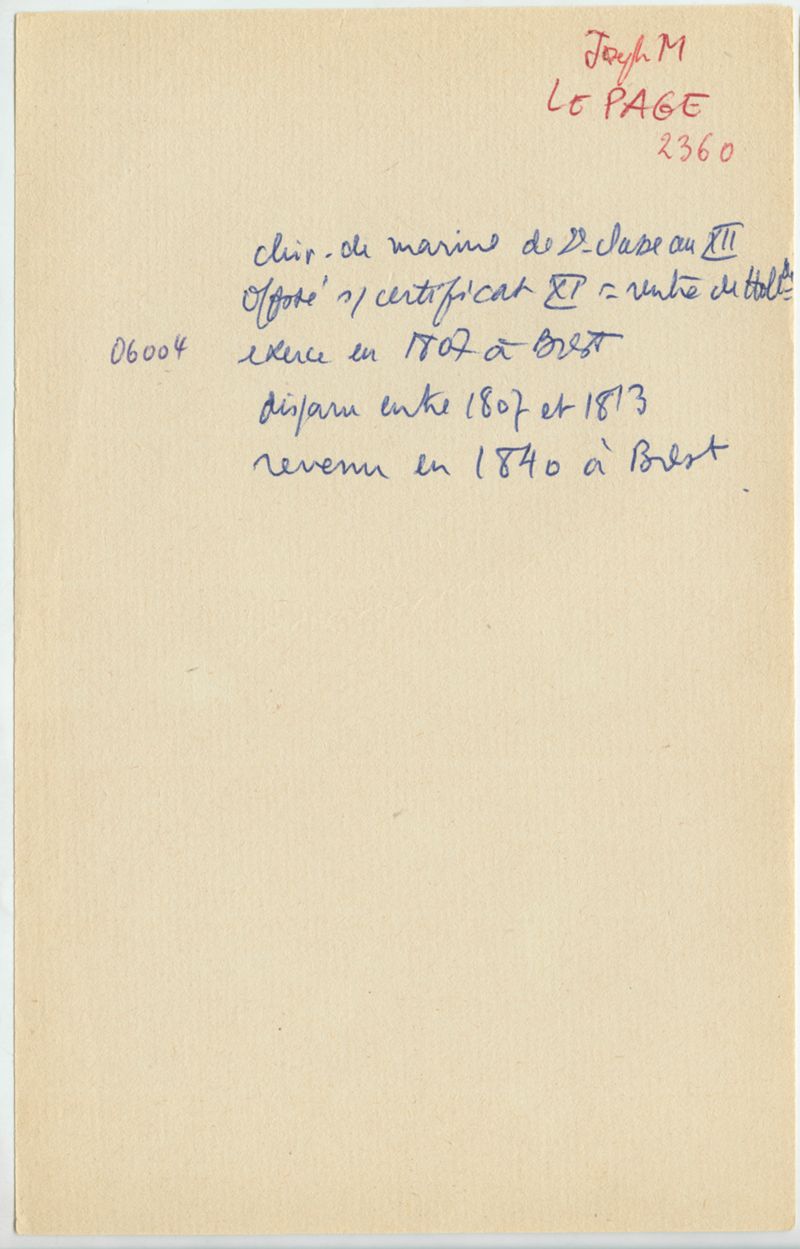 Joseph M
LE PAGE
2360
chir. de marine de 2e classe an XII
s/ certificat XI = rentré de Hol
06004 exerce en 1807 à Brest
disparu entre 1807 et 1813
revenu en 1840 à Brest